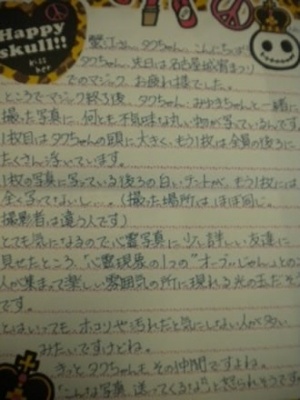 Happy
skull!!
kill
her
蟹江さん、タクちゃん、こんにちは
タクちゃん、先日は名古屋城宵まつり
でのマジック、お疲れ様でした。
ところでマジック終了後、タクちゃん、みゆきちゃんと一緒に
撮った写真に、何とも不気味な丸い物が写っているんです
1枚目はタクちゃんの頭に大きく、もう1枚は全員の後ろに
たくさん浮いています。
1枚の写真に写っている後ろの白いテントが、もう1枚には
全く写ってないし…。(撮った場所はほぼ同じ。
撮影者は違う人です)
とても気になるので心霊写真に少し詳しい友達に
見せたところ、"心霊現象の1つの"オーブ"じゃん」との
人が集まって楽しい雰囲気の所に現れる光の玉だそう
です。
とはいっても、ホコリや汚れだと気にしない人が多い
みたいですけどね。
きっとタクちゃんもその仲間ですよね。
「こんな写真、送ってくるな!」と怒られそうです